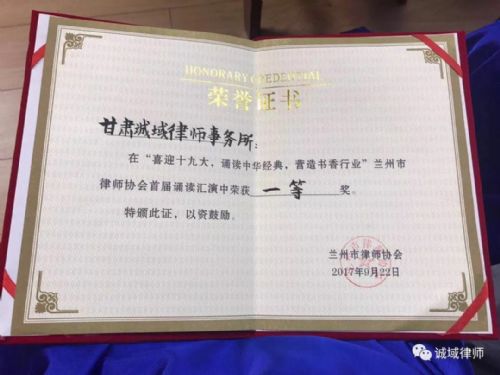 HONORARY CREDENTIAL
荣誉证书
甘肃诚域律师事务所：
在“喜迎十九大，诵读中华经典，营造书香行业”兰州市
律师协会首届诵读汇演中荣获 一等 奖。
特颁此证，以资鼓励。
兰州市律师协会
2017年9月22日
诚域律师